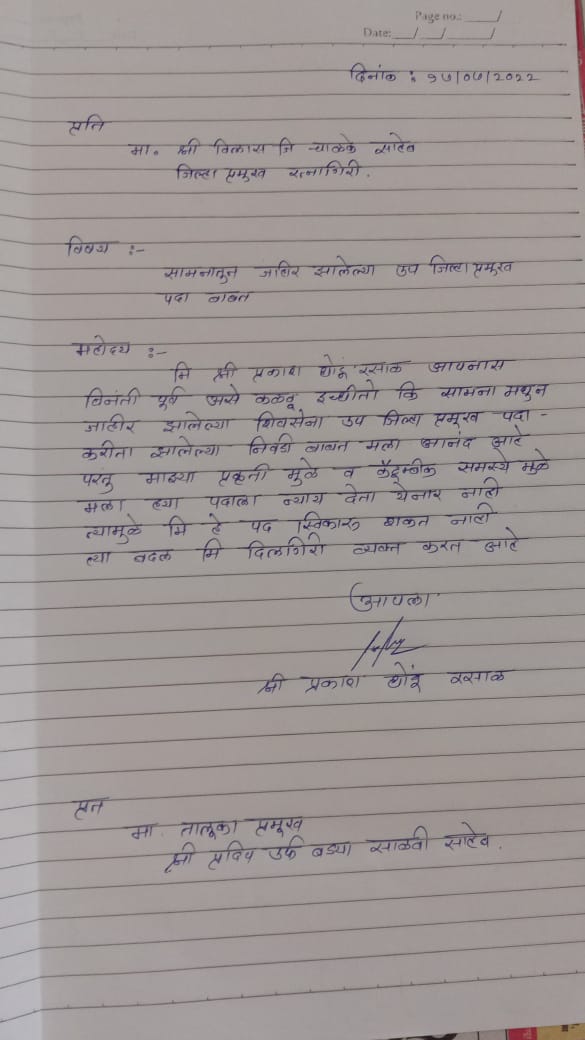 Page no.: ___/
Date: __/__/____/
दिनांक : १५/०७/२०२२
प्रति
मा. श्री विलास जि चाळके साहेब
जिल्हा प्रमुख रत्नागिरी.
विषय :-
सामनातुन जाहिर झालेल्या उप जिल्हा प्रमुख
पदा बाबत
महोदय :-
मि श्री प्रकाश धोंडू रसाळ आपनास
विनंती पूर्व असे कळवू इच्छीतो कि सामना मधुन
जाहीर झालेल्या शिवसेना उप जिल्हा प्रमुख पदा -
करीता झालेल्या निवडी बाबत मला आनंद आहे
परंतु माझ्या प्रकृती मुळे व कौटुम्बीक समस्ये मुळे
मला ह्या पदाला न्याय देता येनार नाही
त्यामुळे मि हे पद स्विकारू शकत नाही
त्या बदल मि दिलगिरी व्यक्त करत आहे
आपला
श्री प्रकाश धोंडू रसाळ
प्रत
मा. तालूका प्रमुख
श्री प्रदिप उर्फ बंड्या साळवी साहेब.